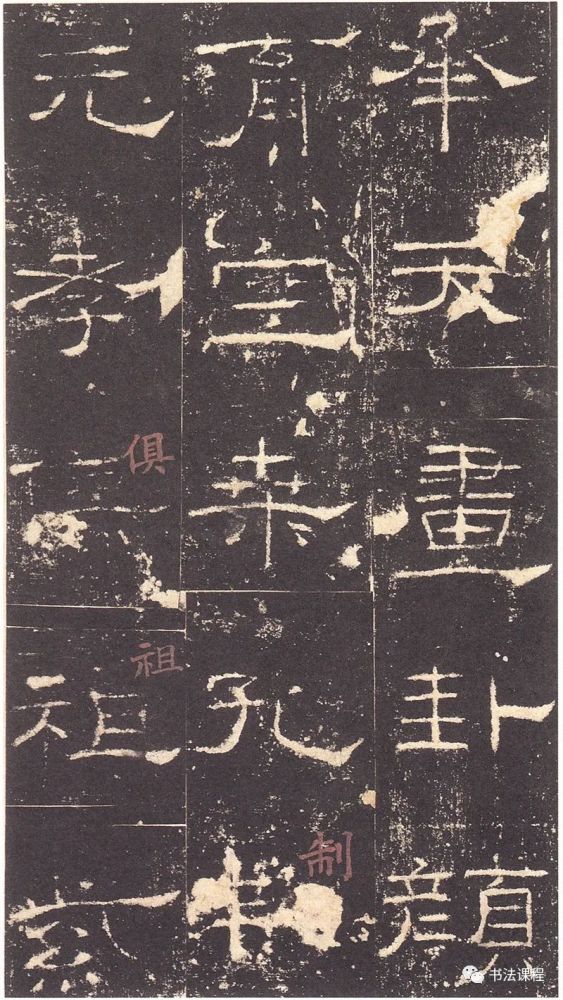 承天畫卦顏
育空桒孔制
元孝俱祖紫
制
俱
祖
书法课程